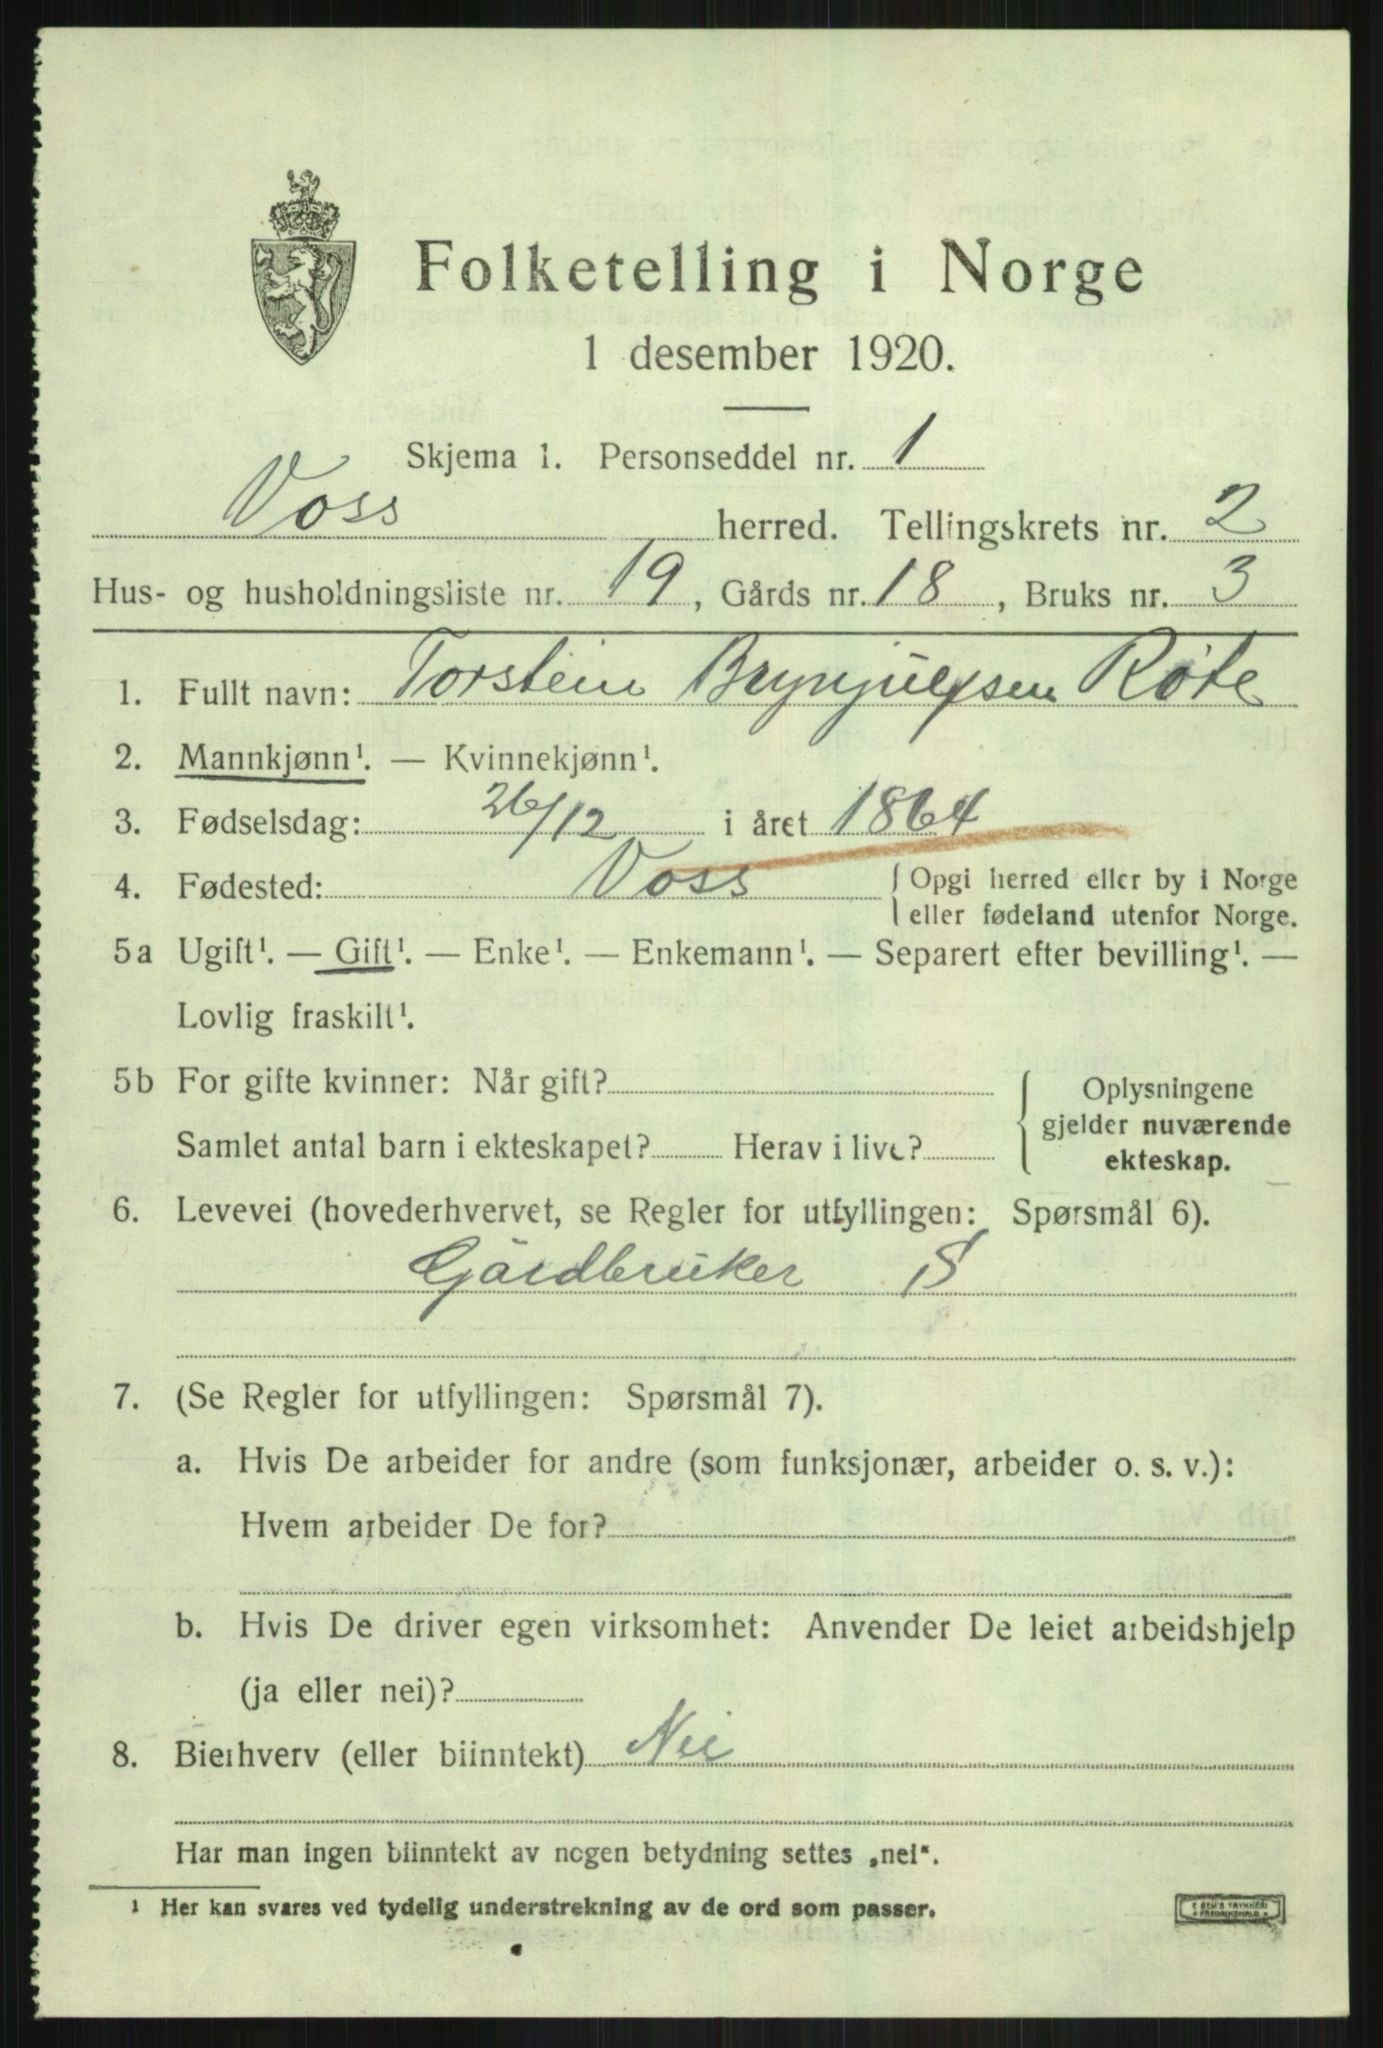 Folketelling i Norge
1 desember 1920.
Skjema 1. Personseddel nr. 1
Voss herred. Tellingskrets nr. 2
Hus- og husholdningsliste nr. 19, Gårds nr. 18, Bruks nr. 3
1. Fullt navn: Torstein Brynjulfsen Røte
2. Mannkjønn¹. — Kvinnekjønn¹.
3. Fødselsdag: 26/12 i året 1864
4. Fødested: Voss { Opgi herred eller by i Norge
eller fødeland utenfor Norge.
5a Ugift¹. — Gift¹. — Enke¹. — Enkemann¹. — Separert efter bevilling¹. —
Lovlig fraskilt¹.
5b For gifte kvinner: Når gift?
Samlet antal barn i ekteskapet? Herav i live?
Oplysningene
gjelder nuværende
ekteskap.
6. Levevei (hovederhvervet, se Regler for utfyllingen: Spørsmål 6).
Gårdbruker S
7. (Se Regler for utfyllingen: Spørsmål 7).
a. Hvis De arbeider for andre (som funksjonær, arbeider o. s. v.):
Hvem arbeider De for?
b. Hvis De driver egen virksomhet: Anvender De leiet arbeidshjelp
(ja eller nei)?
8. Bierhverv (eller biinntekt) Nei
Har man ingen biinntekt av nogen betydning settes „nei“.
¹ Her kan svares ved tydelig understrekning av de ord som passer.